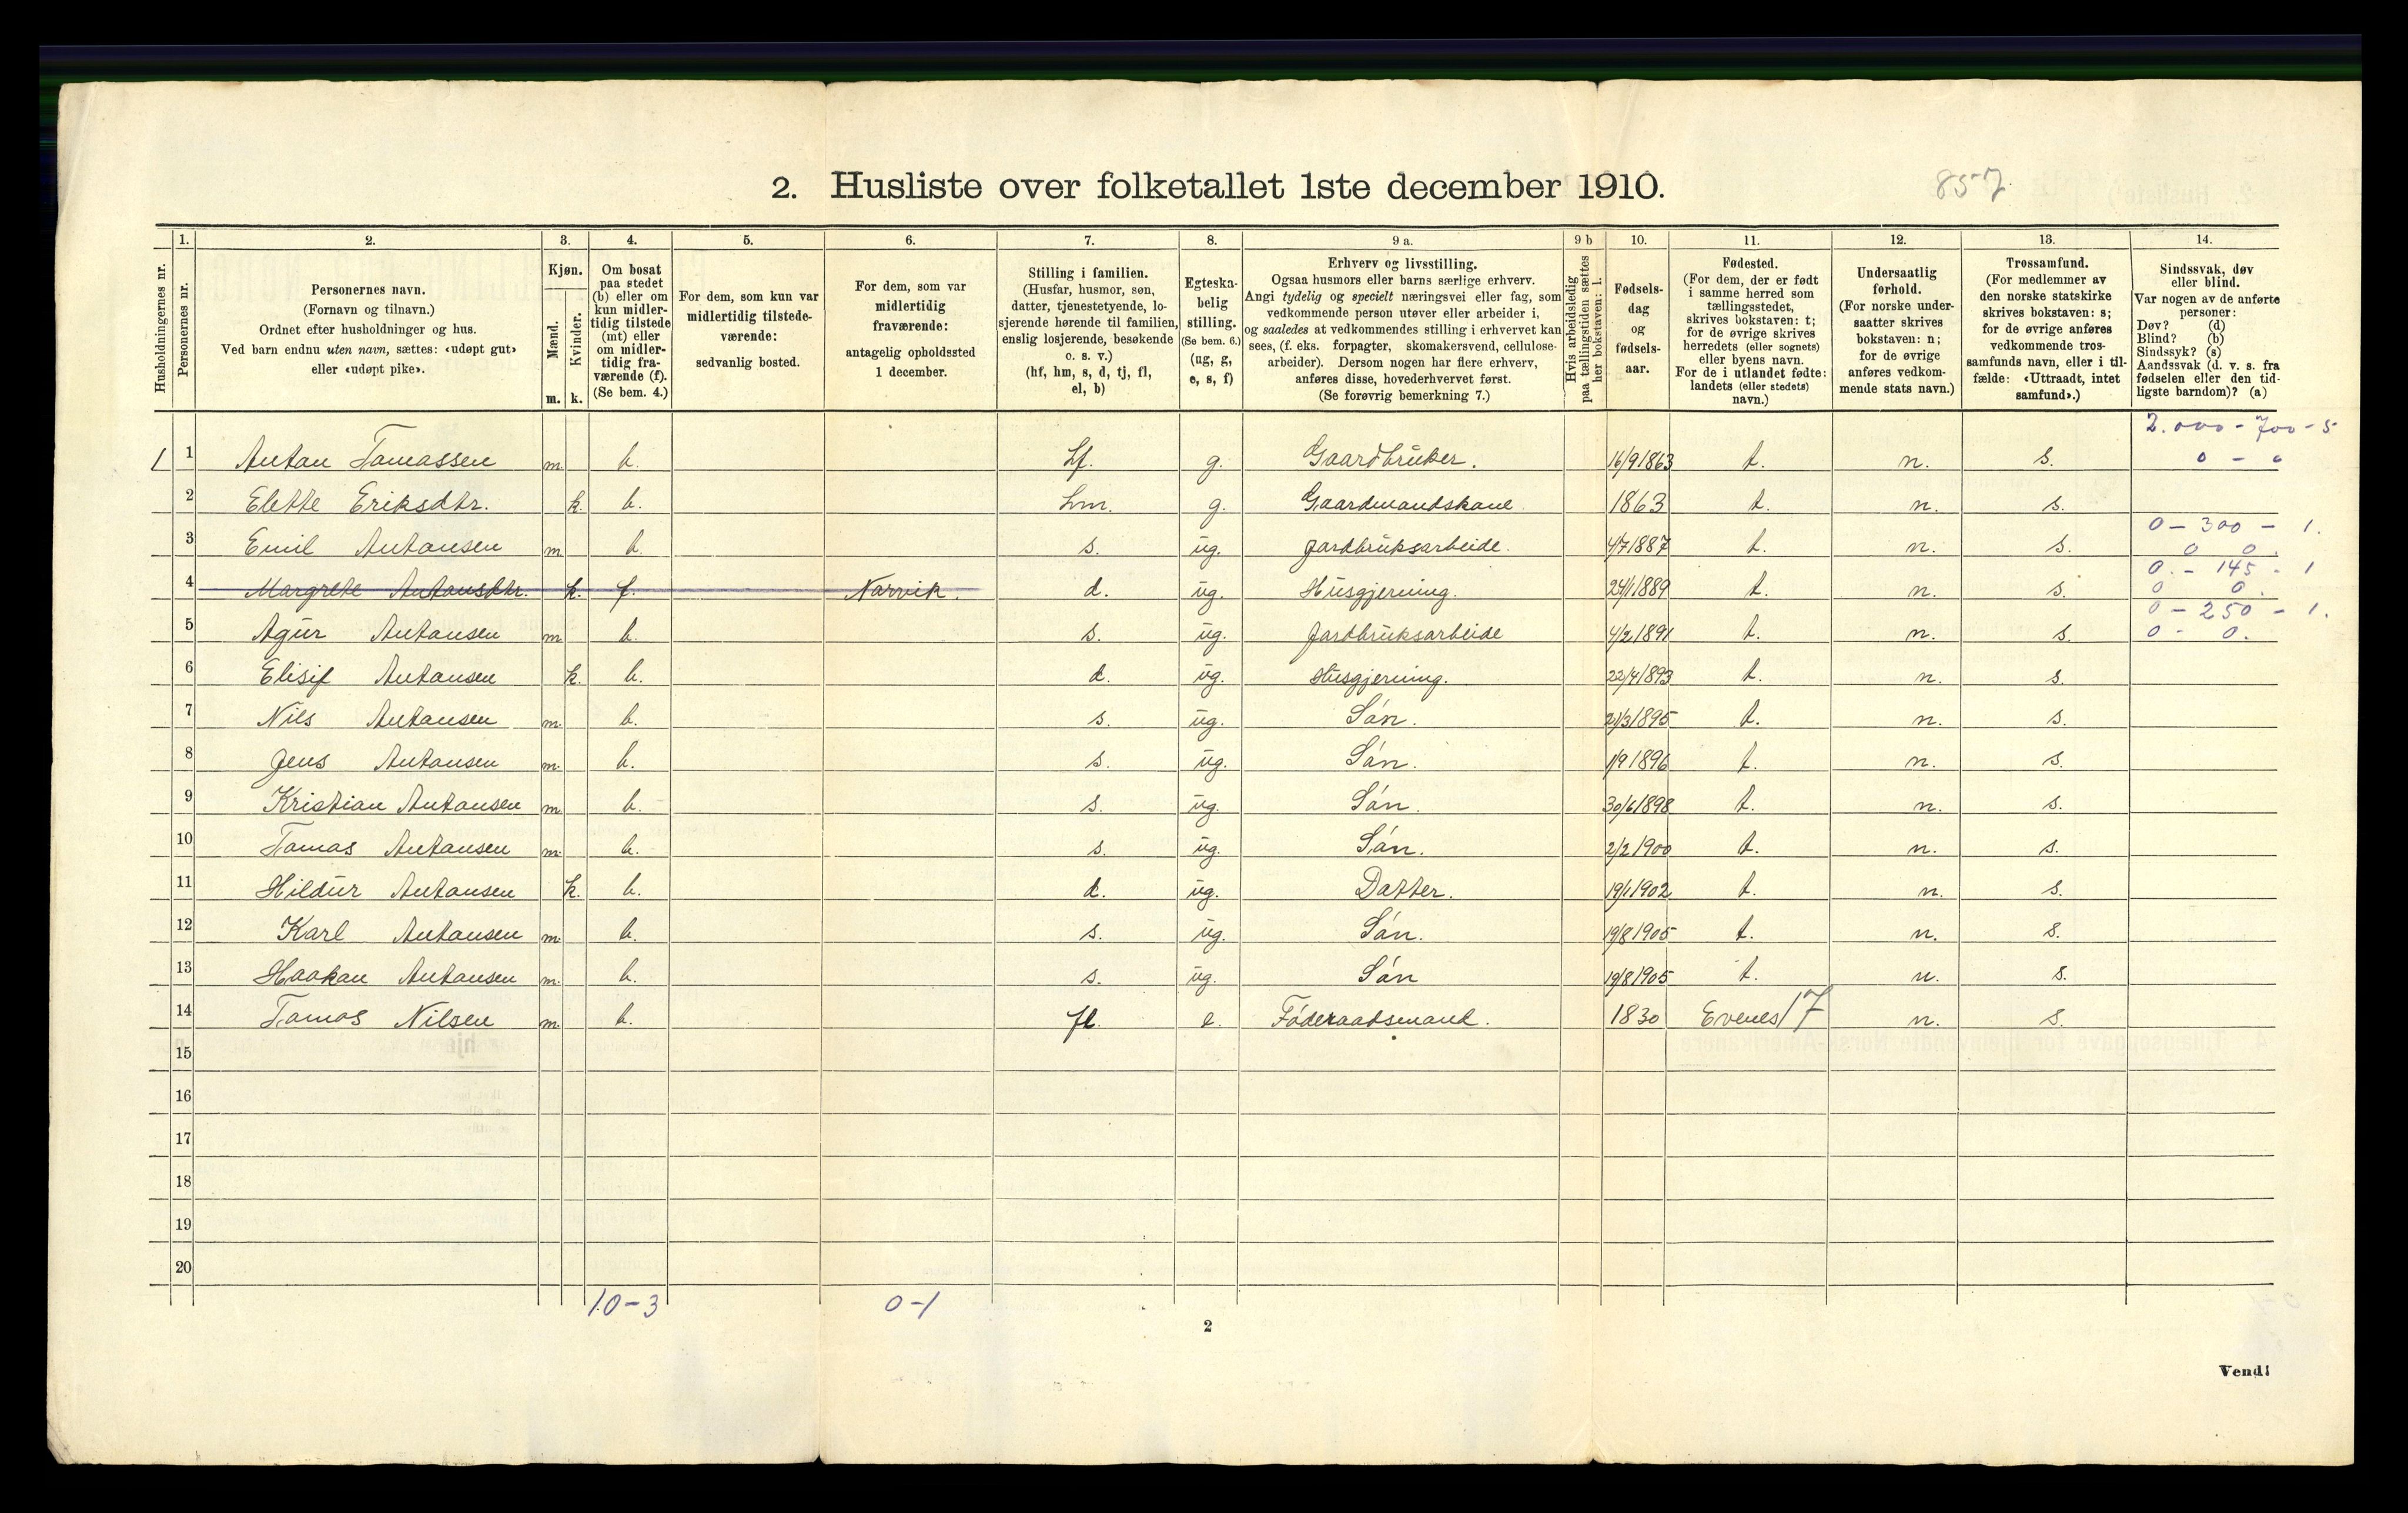 2. Husliste over folketallet 1ste december 1910.
857
1. 2. 3. 4. 5. 6. 7. 8. 9 a. 9 b 10. 11. 12. 13. 14.
Husholdningernes nr.
Personernes nr.
Personernes navn.
(Fornavn og tilnavn.)
Ordnet efter husholdninger og hus.
Ved barn endnu uten navn, sættes: «udøpt gut»
eller «udøpt pike».
Kjøn.
Mænd.
Kvinder.
m. k.
Om bosat
paa stedet
(b) eller om
kun midler-
tidig tilstede
(mt) eller
om midler-
tidig fra-
værende (f).
(Se bem. 4.)
For dem, som kun var
midlertidig tilstede-
værende:
sedvanlig bosted.
For dem, som var
midlertidig
fraværende:
antagelig opholdssted
1 december.
Stilling i familien.
(Husfar, husmor, søn,
datter, tjenestetyende, lo-
sjerende hørende til familien,
enslig losjerende, besøkende
o. s. v.)
(hf, hm, s, d, tj, fl,
el, b)
Egteska-
belig
stilling.
(Se bem. 6.)
(ug, g,
e, s, f)
Erhverv og livsstilling.
Ogsaa husmors eller barns særlige erhverv.
Angi tydelig og specielt næringsvei eller fag, som
vedkommende person utøver eller arbeider i,
og saaledes at vedkommendes stilling i erhvervet kan
sees, (f. eks. forpagter, skomakersvend, cellulose-
arbeider). Dersom nogen har flere erhverv,
anføres disse, hovederhvervet først.
(Se forøvrig bemerkning 7.)
Hvis arbeidsledig
paa tællingstiden sættes
her bokstaven: l.
Fødsels-
dag
og
fødsels-
aar.
Fødested.
(For dem, der er født
i samme herred som
tællingsstedet,
skrives bokstaven: t;
for de øvrige skrives
herredets (eller sognets)
eller byens navn.
For de i utlandet fødte:
landets (eller stedets)
navn.)
Undersaatlig
forhold.
(For norske under-
saatter skrives
bokstaven: n;
for de øvrige
anføres vedkom-
mende stats navn.)
Trossamfund.
(For medlemmer av
den norske statskirke
skrives bokstaven: s;
for de øvrige anføres
vedkommende tros-
samfunds navn, eller i til-
fælde: «Uttraadt, intet
samfund».)
Sindssvak, døv
eller blind.
Var nogen av de anførte
personer:
Døv? (d)
Blind? (b)
Sindssyk? (s)
Aandssvak (d. v. s. fra
fødselen eller den tid-
ligste barndom)? (a)
2.000 - 700 - 5
1 1 Anton Tomassen m. b. hf. g. Gaardbruker. 16/9 1863 t. n. s. 0 - 0
2 Elette Eriksdtr. k. b. hm. g. Gaardmandskone 1863 t. n. s.
0 - 300 - 1.
3 Emil Antonsen m b. s. ug. Jordbruksarbeide. 4/7 1887 t. n. s. 0 0.
0. - 145 - 1
4 Margrete Antonsdtr. k. f. Narvik. d. ug. Husgjerning. 24/1 1889 t. n. s. 0 0.
0 - 250 - 1.
5 Agur Antonsen m b. s. ug. Jordbruksarbeide 4/2 1891 t. n. s. 0 - 0.
6 Elisif Antonsen k. b. d. ug. Husgjerning. 22/4 1893 t. n. s.
7 Nils Antonsen m. b. s. ug. Són. 21/3 1895 t. n. s.
8 Jens Antonsen m. b. s. ug. Són. 1/9 1896 t. n. s.
9 Kristian Antonsen m. b. s. ug. Són. 30/6 1898 t. n. s.
10 Tomas Antonsen m. b. s. ug. Són. 2/2 1900 t. n. s.
11 Hildur Antonsen k. b. d. ug. Datter. 19/1 1902 t. n. s.
12 Karl Antonsen m. b. s. ug. Són. 19/8 1905 t. n. s.
13 Haakon Antonsen m. b. s. ug. Són 19/8 1905 t. n. s.
14 Tomas Nilsen m. b. fl. e. Fóderaadsmand. 1830 Evenes 17 n. s.
15
16
17
18
19
20
10-3 0-1
2
Vend!